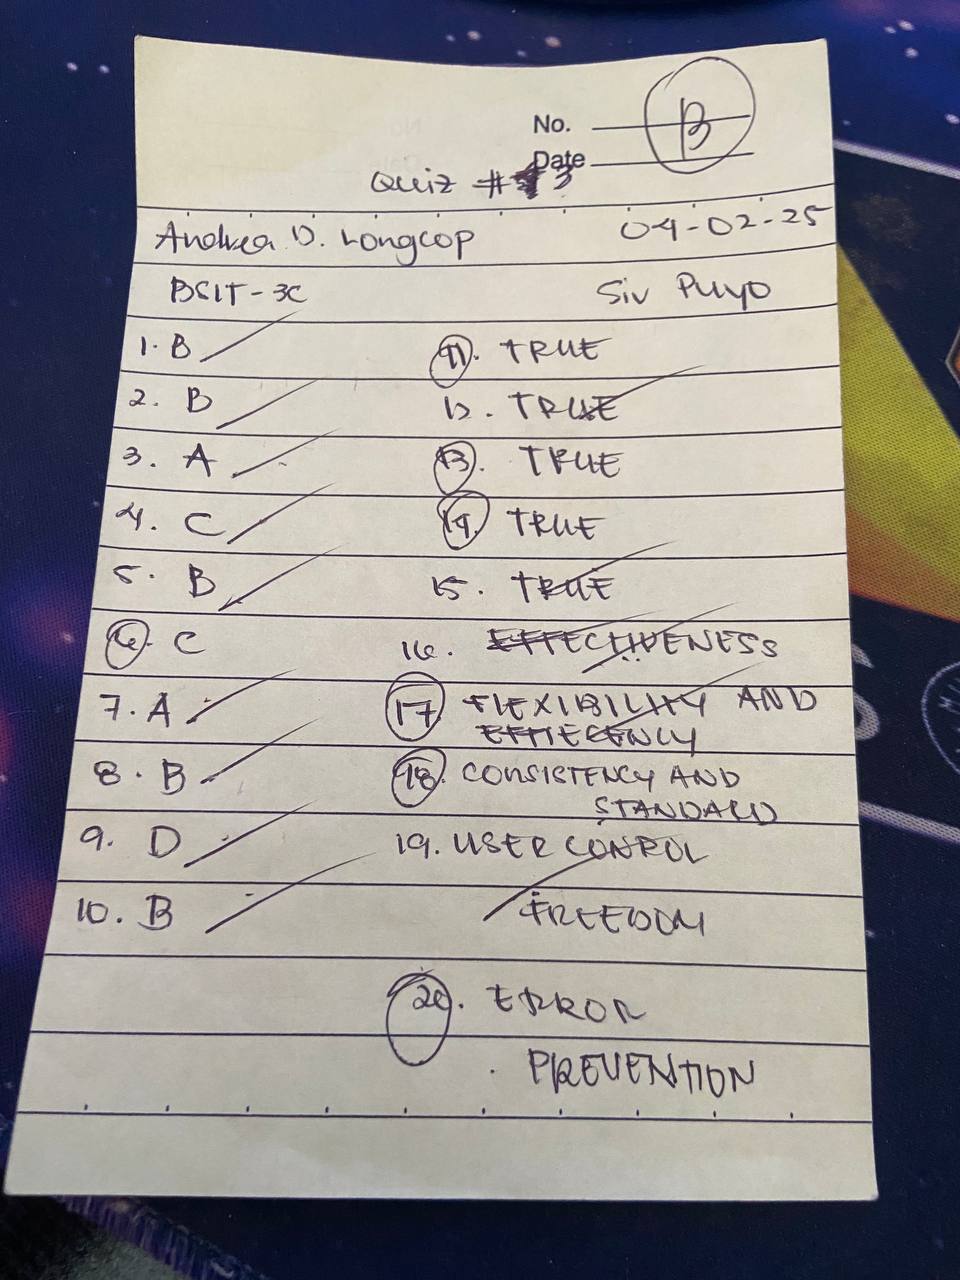 No.
B
Date
Quiz # 3
Andrea D. Longcop 04-02-25
BSIT-3C Sir Puyo
1. B
2. B
3. A
4. C
5. B
6. C
7. A
8. B
9. D
10. B
11. TRUE
12. TRUE
13. TRUE
14. TRUE
15. TRUE
16. EFFECTIVENESS
17 FLEXIBILITY AND
EFFIECENCY
18. CONSISTENCY AND
STANDARD
19. USER CONROL
FREEDOM
20. ERROR
PREVENTION